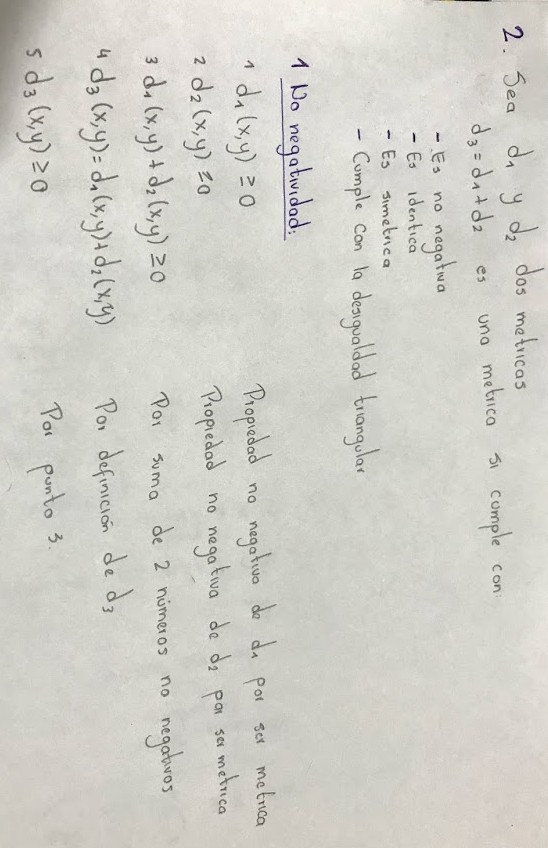 2. Sea d₁ y d₂ dos metricas
d₃ = d₁ + d₂ es una metrica si cumple con:
- Es no negativa
- Es identica
- Es simetrica
- Cumple con la desigualdad triangular
1 No negatividad:
1 d₁(x,y) ≥ 0 Propiedad no negativa de d₁ por ser metrica
2 d₂(x,y) ≥ 0 Propiedad no negativa de d₂ por ser metrica
3 d₁(x,y) + d₂(x,y) ≥ 0 Por suma de 2 números no negativos
4 d₃(x,y) = d₁(x,y) + d₂(x,y) Por definición de d₃
5 d₃(x,y) ≥ 0 Por punto 3.